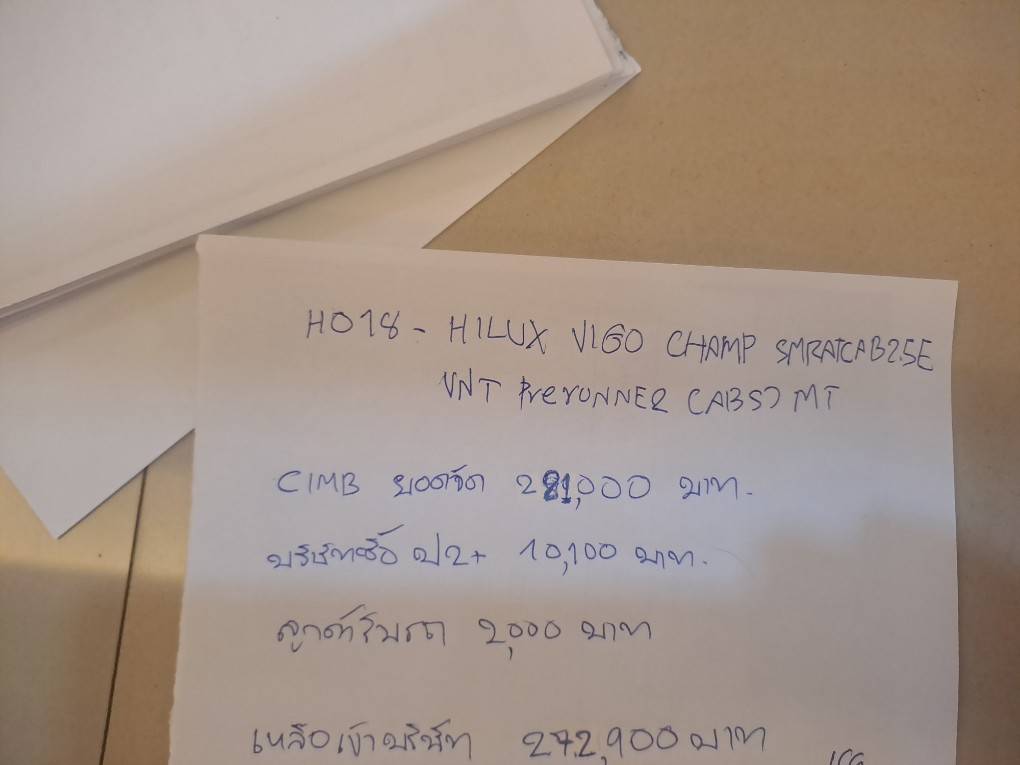 HO18 - HILUX VIGO CHAMP SMRATCAB2.5E
VNT PrerUNNER (ABS) MT
CIMB ยอดจัด 281,000 บาท.
บริษัทซื้อ ป2+ 10,100 บาท.
ลูกค้ารับรถ 2,000 บาท
เหลือเข้าบริษัท 272,900 บาท